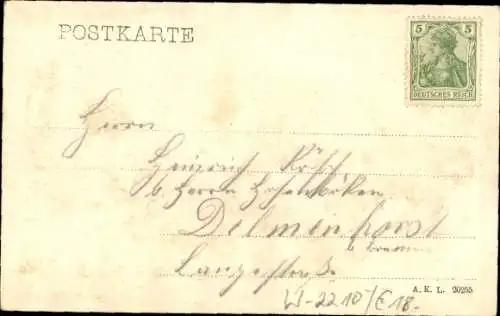 POSTKARTE
5 5
DEUTSCHES REICH
Herrn
Heinrich
b. Herrn
Delmenhorst
b. Bremen
Langestraße.
A. K. L. 20255
W-2210/€18.-